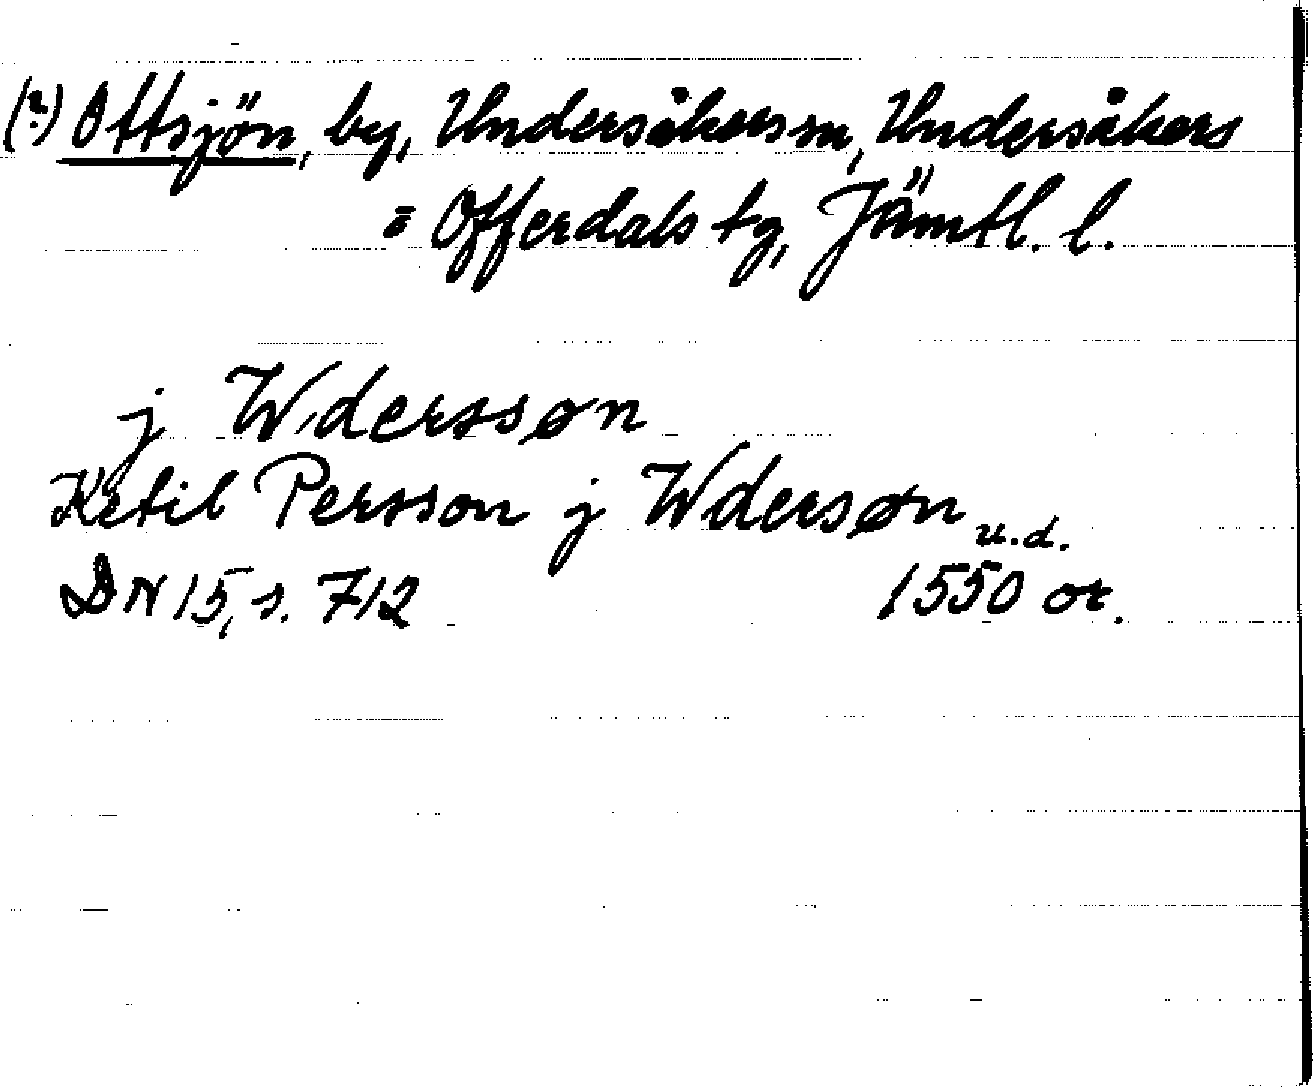 (?) Ottsjön, by, Undersåkers sn, Undersåkers
= Offerdals tg, Jämtl. l.
j Wderssøn
Ketil Persson j Wdersøn u.d.
DN 15, s. 712 1550 or.